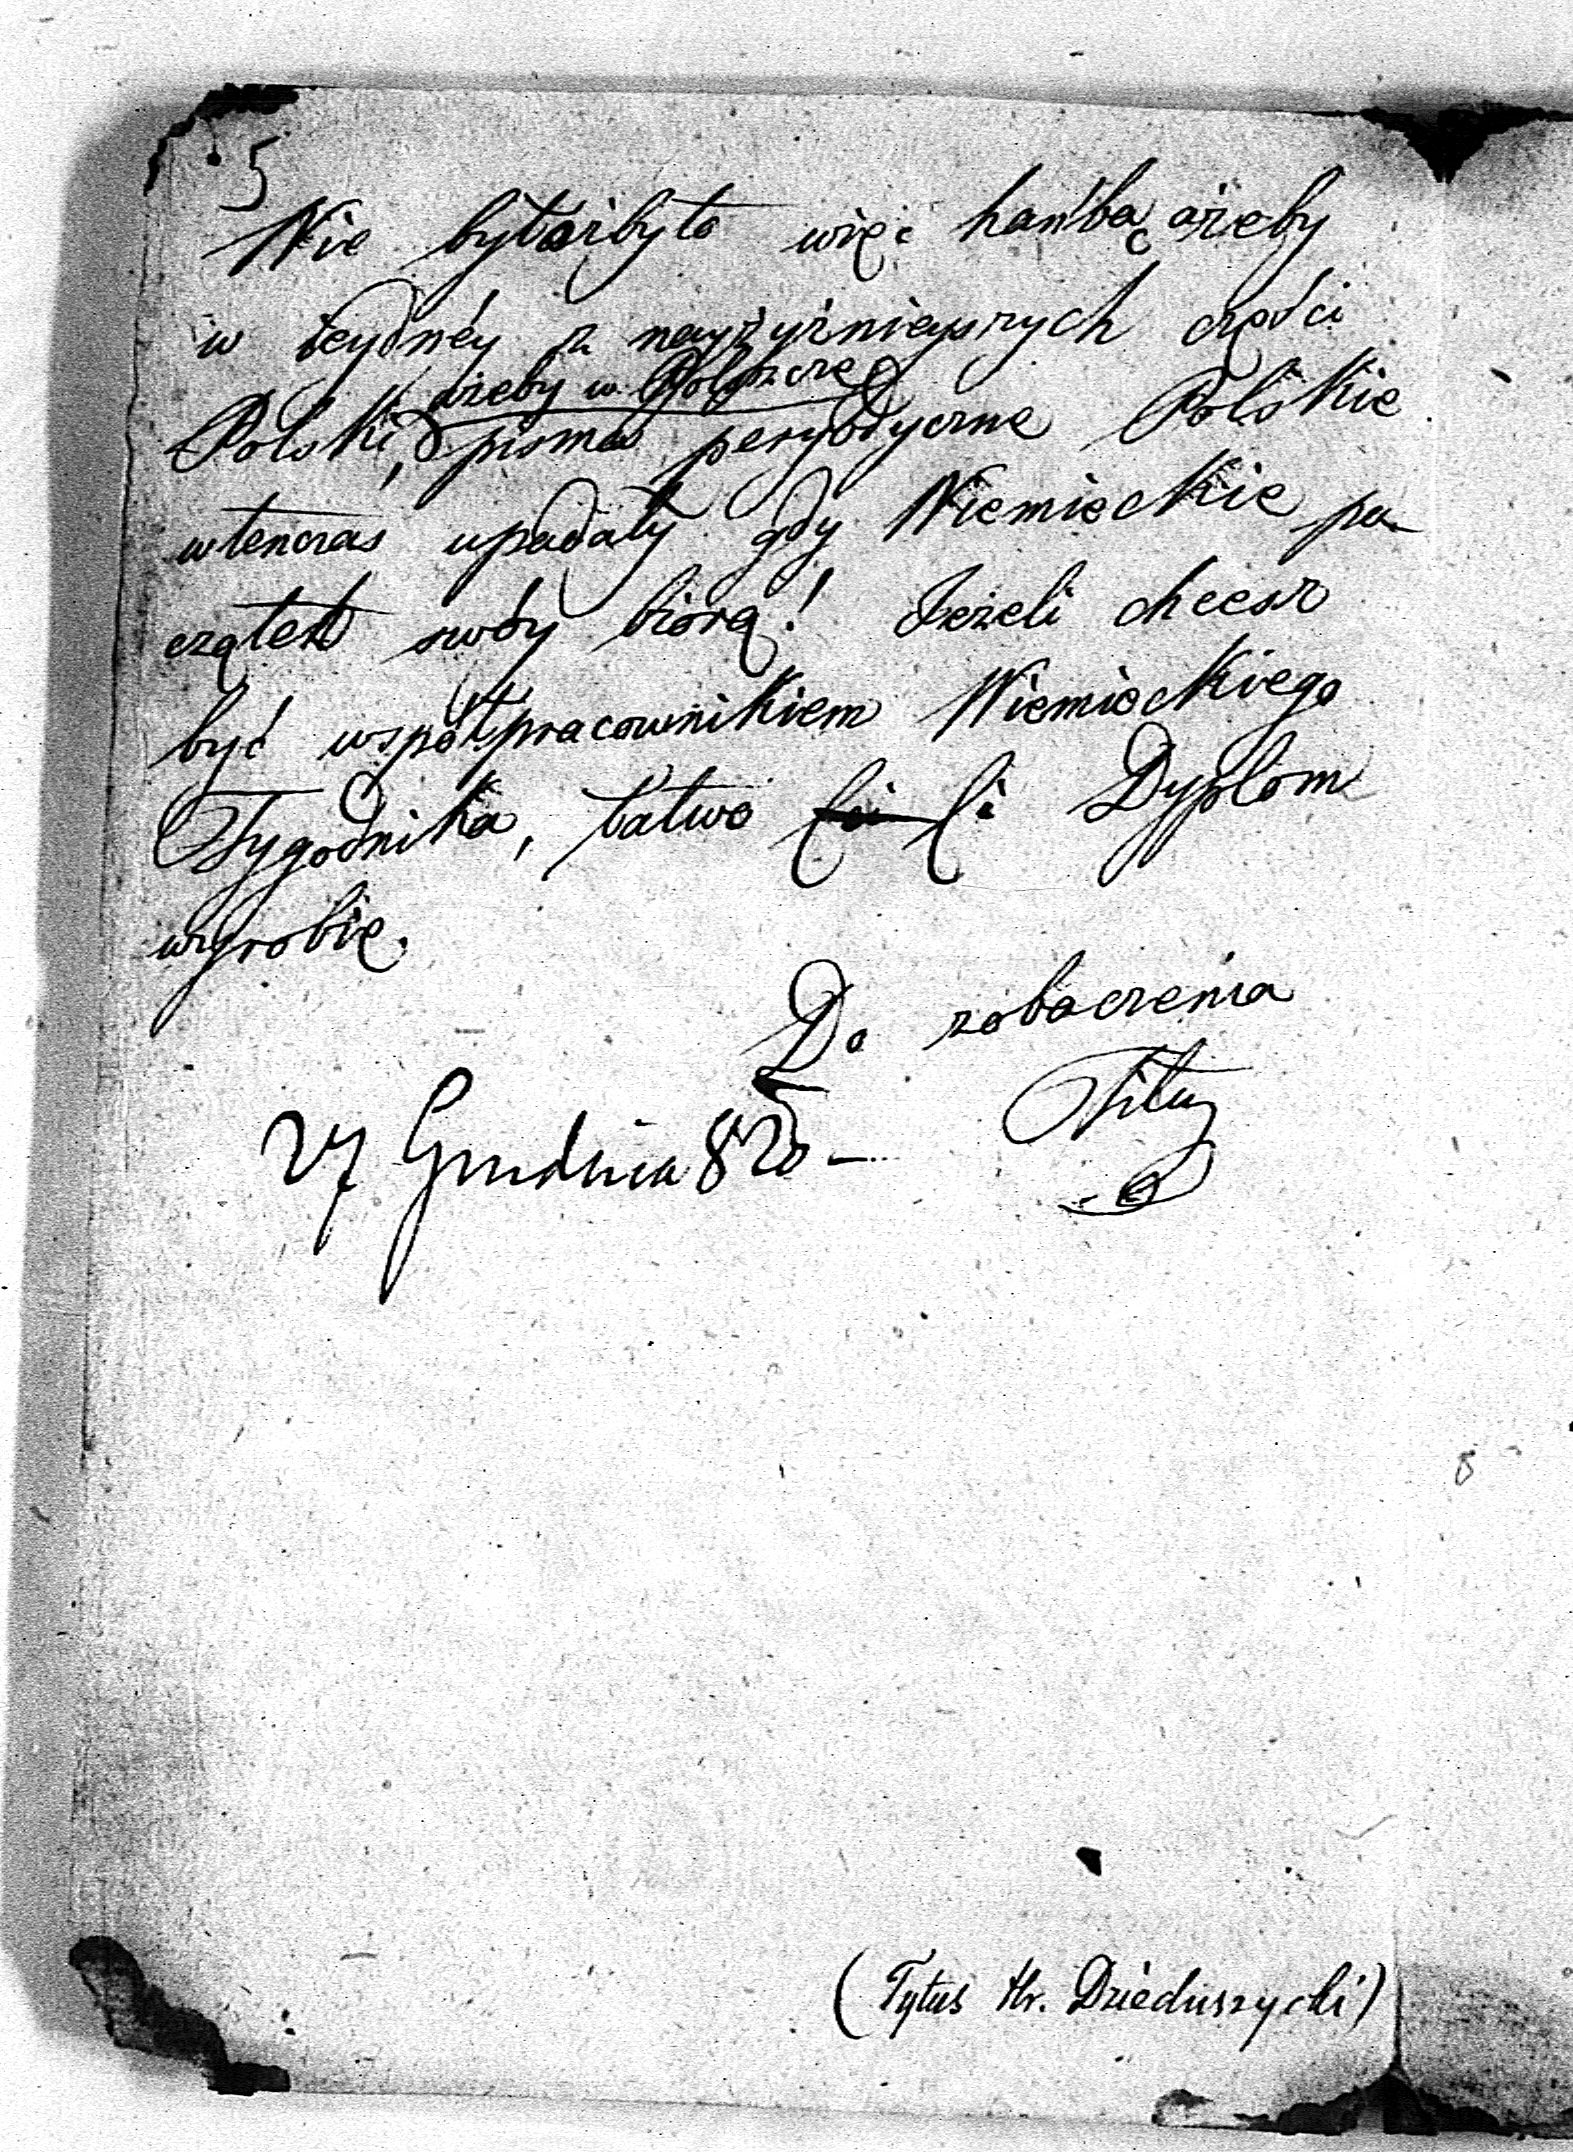 5
Nie byłożbyto więc hańbą ażeby
w jeydnéy z nayżyźnieyszych części
ażeby w Polszcze
Polski, pisma peryodyczne Polskie
wtenczas upadały gdy Niemieckie po-
czątek swóy biorą! Jeżeli chcesz
być współpracownikiem Niemieckiego
Tygodnika, łatwo ci Dyplom
wyrobię.
Do zobaczenia
Titus
27 Grudnia 820 —
(Tytus Hr. Dzieduszycki)